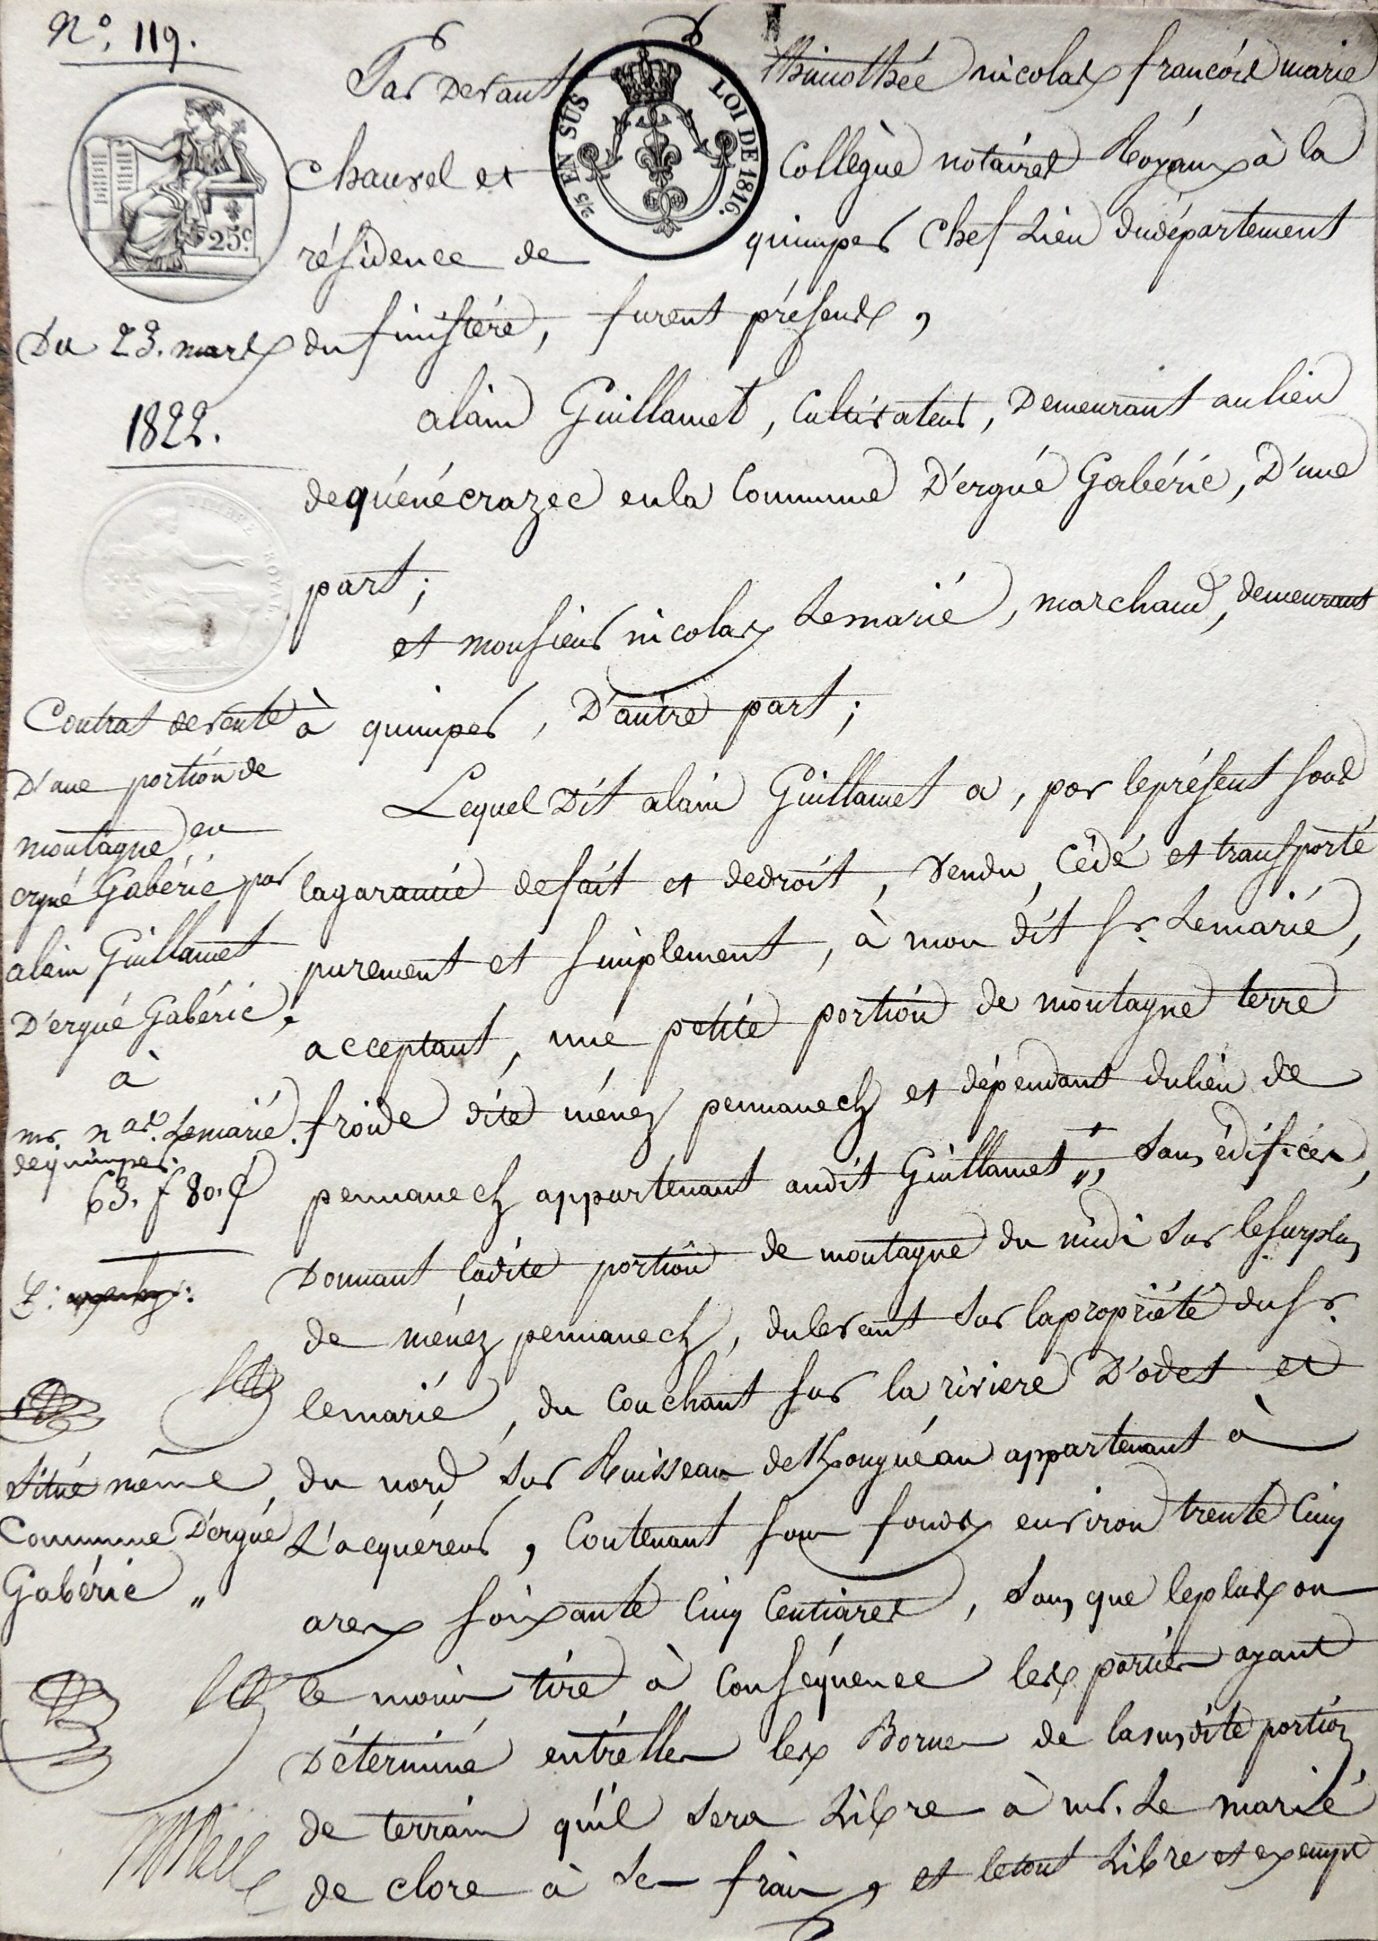 N°. 119.
Par devant thimothée nicolas françois marie
Chauvel et Collègue notaires Royaux à la
résidence de quimper Chef Lieu du département
du finistère, furent présens,
2/5 EN SUS
LOI DE 1816.
25c
Du 23. mars
1822.
alain Guillamet, Cultivateur, Demeurant au lieu
de quénécrazec en la Commune D'ergué Gabéric, D'une
part;
et monsieur nicolas Lemarié, marchand, demeurant
à quimper, D'autre part;
Contrat de vente
D'une portion de
montagne en
ergué Gabéric par
alain Guillamet
D'ergué Gabéric,
à
mr. nas. Lemarié.
de quimper.
63. f 80. c
Lequel Dit alain Guillamet a, par le présent sous
la garantie de fait et de droit, vendu, Cédé et transporté
purement et simplement, à mon dit sr. Lemarié,
acceptant, une petite portion de montagne terre
froide dite ménez pennanech et dépendant du lieu de
pennanech appartenant audit Guillamet, sans édifices,
Donnant ladite portion de montagne du midi sur le surplus
de ménez pennanech, du levant sur la propriété du sr.
lemarié, du Couchant sur la riviere D'odet et
du nord sur Ruisseau de Kongueau appartenant à
L'acquéreur, Contenant sous fonds environ trente Cinq
ares soixante Cinq Centiares, sans que le plus ou
le moins tire à Conséquence les parties ayant
Déterminé entr'elles les Bornes de la susdite portion
de terrain qu'il sera Libre à mr. Le marié
de clore à ses frais, et le tout Libre et exempt
situé même
Commune D'ergué
Gabéric "